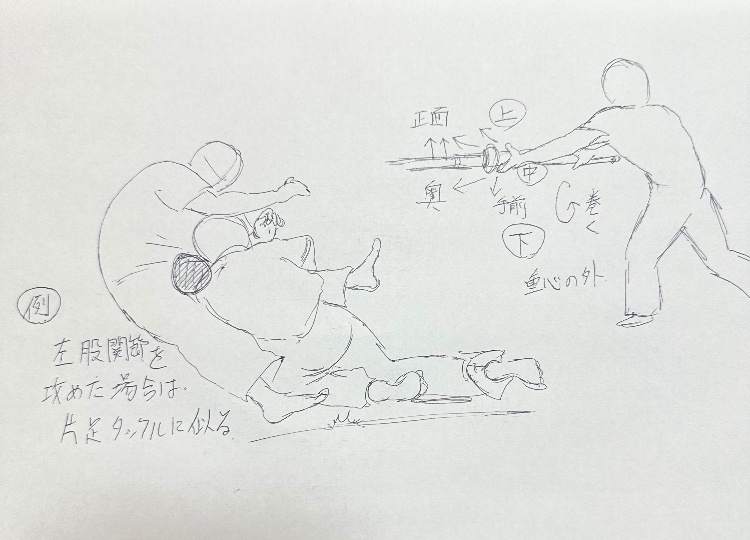 例
左股関節を
攻めた場合は、
片足タックルに似る。
正面
上
中
奥
手前
下
巻く
重心の外